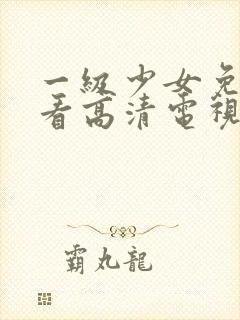 一級少女免
看高清電視
霸丸龍